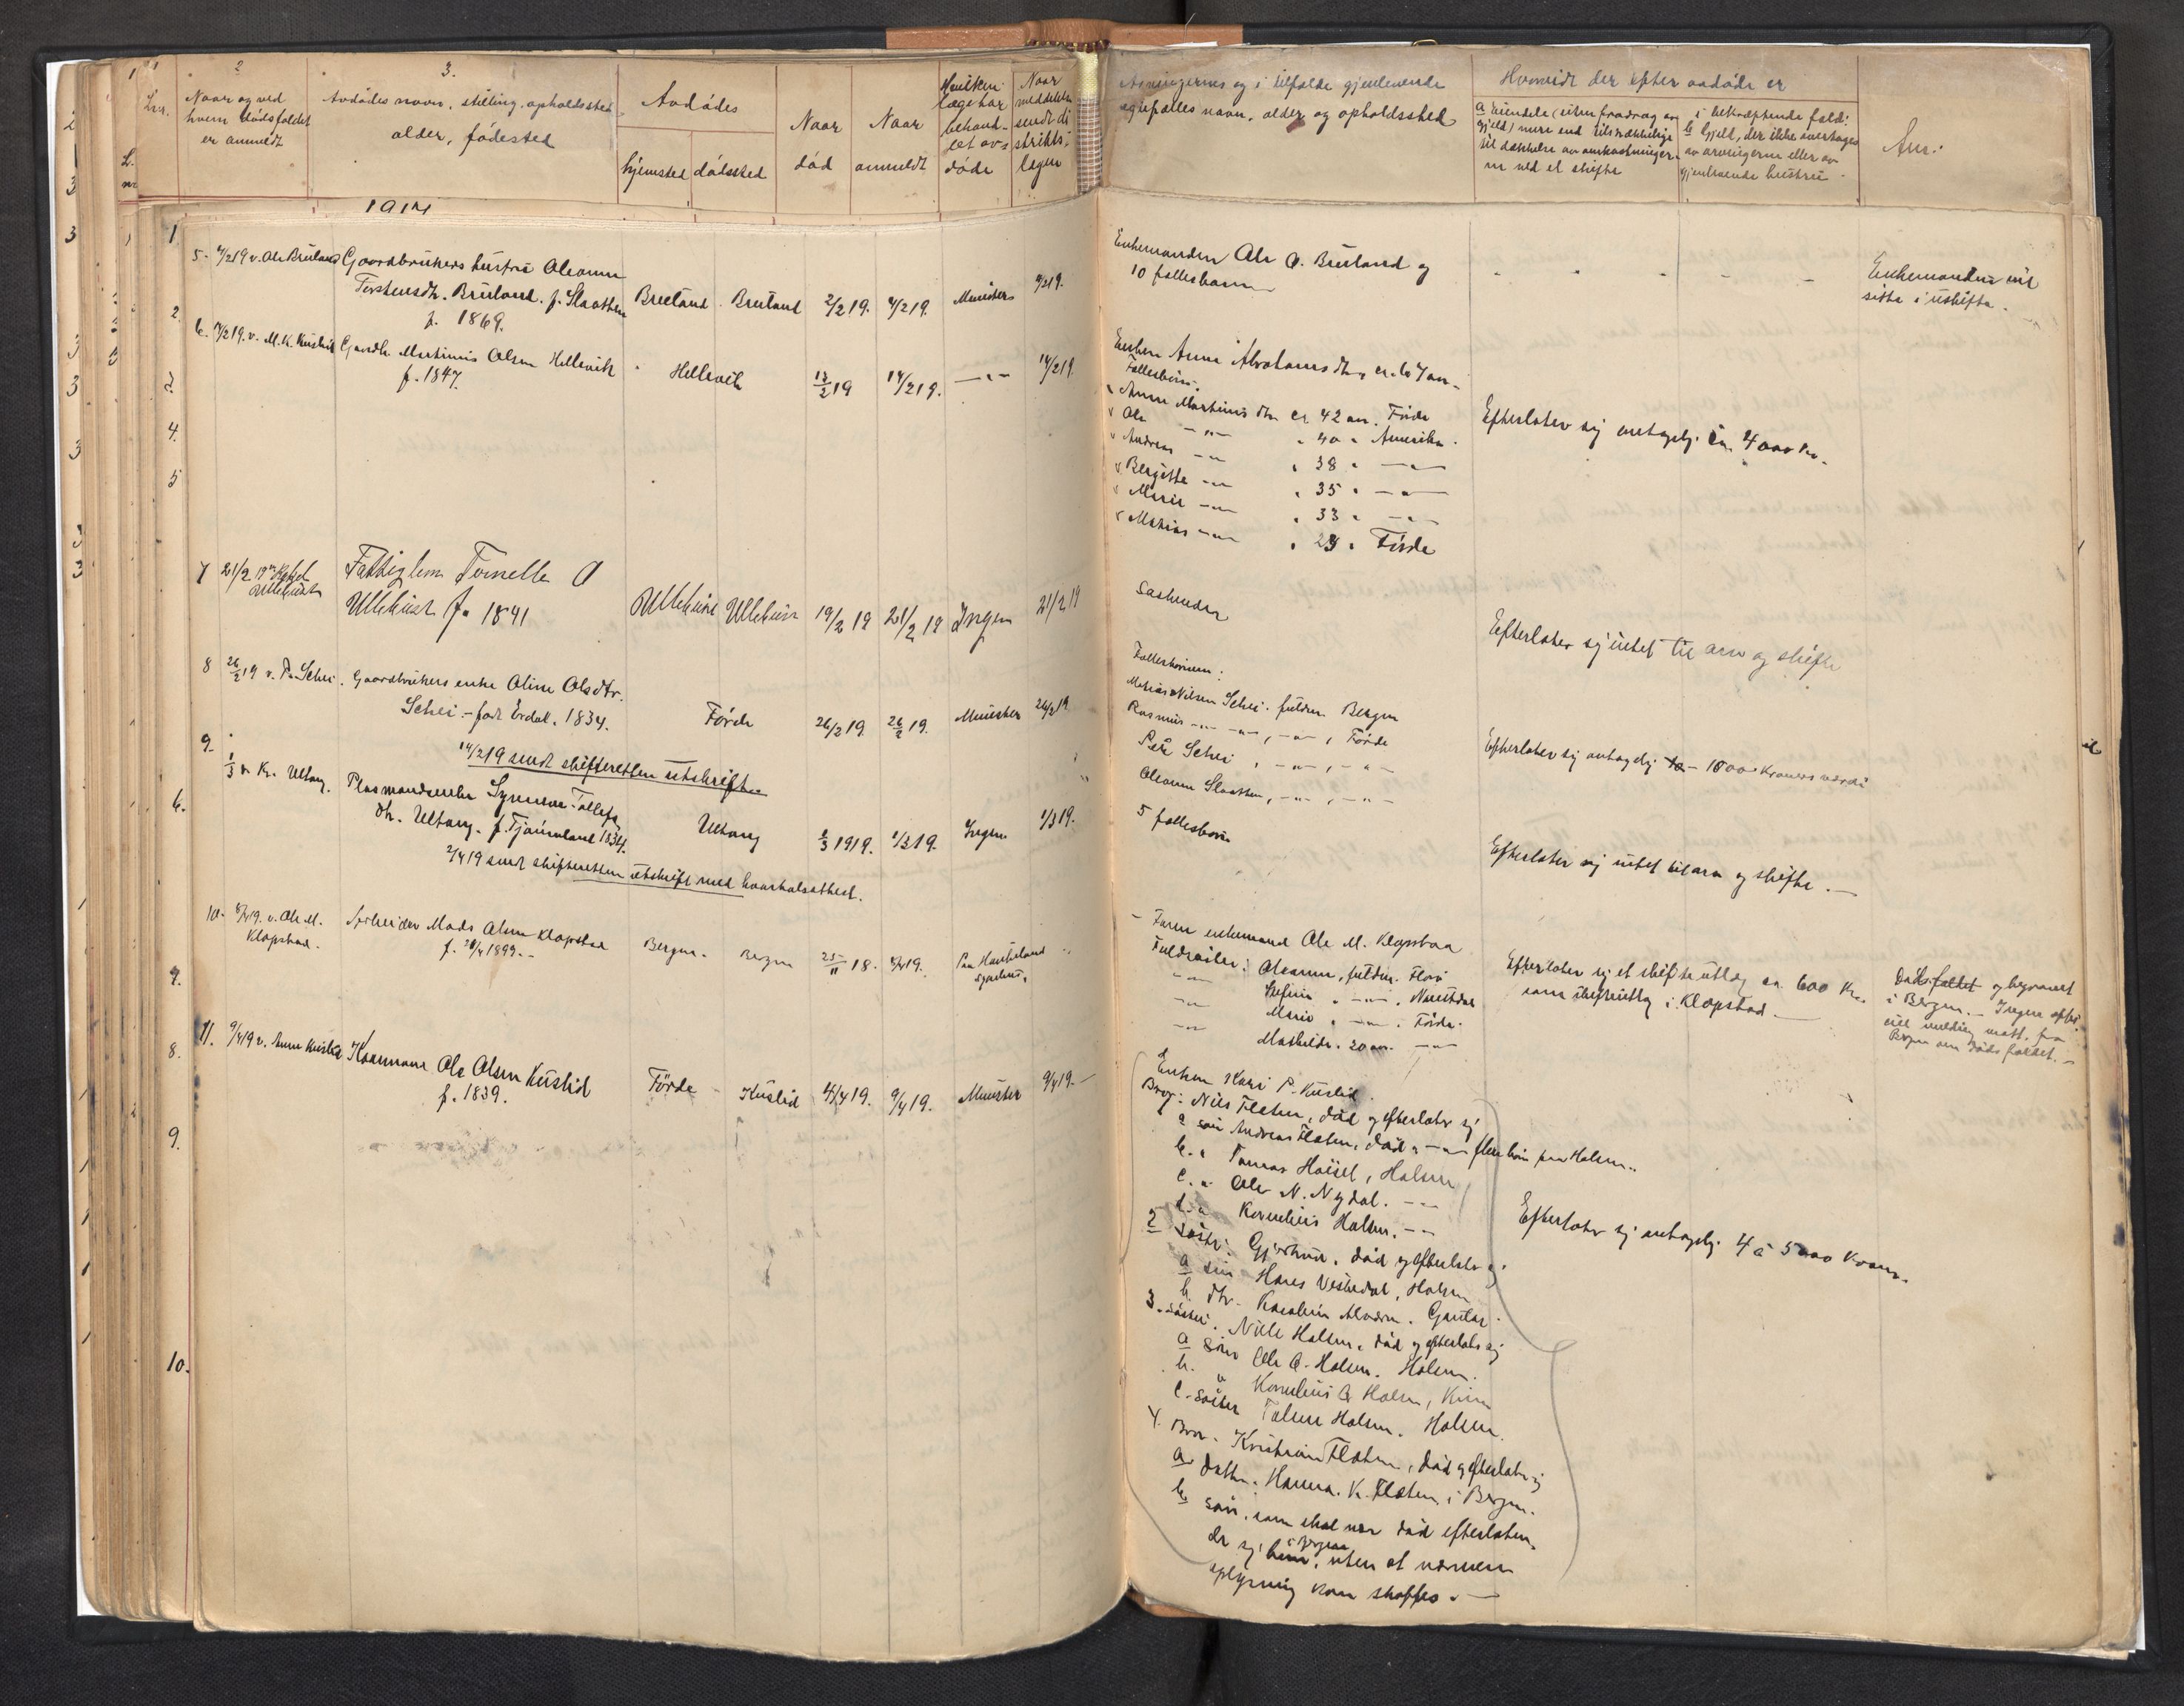 1
2
3.
Lnr.
Naar og ved
hvem dødsfaldet
er anmeldt
Avdødes navn, stilling, opholdssted
alder, fødested
Avdødes
hjemsted
dødssted
Naar
død
Naar
anmeldt
Hvilken
læge har
behand-
let av-
døde
Naar
meddelelse
sendt di
strikts-
lægen
Arvingernes og i tilfælde gjenlevende
egtefælles navn, alder og opholdssted
Hvorvidt der efter avdøde er
a Eiendele (uten fradrag av
gjeld) mere end tilstrækkelige
til dækkelse av omkostninger-
ne ved et skifte
i bekræftende fald:
b Gjeld, der ikke overtages
av arvingerne eller av
gjenlevende hustru
Anm.
5. 4/2 19 v. Ole Bruland
Gaardbrukers hustru Oleanna
Torstensdtr. Bruland. f. Slaatten
f. 1869.
Bruland
Bruland
2/2 19.
4/2 19.
Munster
4/2 19.
Enkemanden Ole O. Bruland og
10 fællesbarn
Enkemanden vil
sitte i uskifte.
6. 14/2 19. v. M. K. Kuslid
Gaardbr. Martinus Olsen Hellevik
f. 1847.
Hellevik
13/2 19
14/2 19.
14/2 19.
Enken Anna Abrahamsdtr,
Fællesbørn:
Anna Martinus dtr er 42 aar. Førde
Ole - " - " 40 " Amerika.
Andreas - " - " 38 " - " -
Bergitte - " - " 35 " - " -
Marie - " - " 33 " - " -
Matias - " - " 28 " Førde
Efterlater sig antagelig ca. 4000 kr.
7 21/2 19
Ullehust
Fattiglem Tomelle O
Ullehust f. 1841
Ullehust
Ullehust
19/2 19
21/2 19
Ingen
21/2 19
Søskender
Efterlater sig intet til arv og skifte
8 26/2 19 v. P. Schei.
Gaardbrukers enke Oline Olsdtr.
Schei. - født Erdal. 1834.
Førde
26/2 19.
26/2 19.
Munster
26/2 19.
Fællesbørnene:
Matias Nilsen Schei. fuldm. Bergen
Rasmus - " - - " -, - " -, Førde
Per Schei, - " -, - " -
Oleanna Slaatten, - " -, - " -
Efterlater sig antagelig 1000 kroners værdi
14/2 19 sendt skifteretten utskrift.
9.
1/3 v. Kr. Ultang.
Plasmandsenke Synneva Tollefs
dtr. Ultang. f. 1834.
Ultang
1/3 1919.
1/3 19.
Ingen
1/3 19.
5 fællesbørn
Efterlater sig intet til arv og skifte.
2/4 19 sendt skifteretten utskrift med
10. 8/4 19. v. Ole M.
Klopstad.
Mads Olsen Klopstad
f. 1899.
Bergen.
Bergen
25/11 18.
8/4 19.
Paa Haukeland
Faren enkemand Ole M. Klopstad
Fuldsøsken: Oleanna, fuldm. Florø
- " - Marie, - " -, Førde.
- " - Mathilde. 20 aar. - " -
Efterlater sig et skifteutlæg ca. 600 Kr.
som skifteutlæg i Klopstad
Dødsfaldet og begravet
i Bergen. - Ingen
Bergen om dødsfaldet. -
11. 9/4 19 v. Anna Kuslid
Kaarmann Ole Olsen Kuslid
f. 1839.
Førde
Kuslid
9/4 19.
Munster
9/4 19.
Enken Kari P. Kuslid.
Bror: Nils Flaten, død og efterlater sig
a søn Andreas Flaten, død - " - flere børn paa Holsen.
b. " Tomas Høisæt, Holsen
c. " Ole N. Nydal. - " -
d. " Kornelius Holsen. - " -
2 søster. Gjertrud, død og efterlater sig
a søn Hans Vestredal, Holsen
b. dtr. Gaular.
3. søster. Nille Holsen, død og efterlater sig
a søn Ole A. Holsen. Holsen.
b. " Kornelius A Holsen, Kinn
c. søster Holsen. Holsen.
4. Bror. Kristian Flaten, død og efterlater sig
a. datter. Hanna. K. Flaten i Bergen.
b. søn, som skal være død efterlaten-
de sig børn, uten at nærmere
oplysning kan skaffes. -
Efterlater sig antagelig. 4 à 5000 kroner.